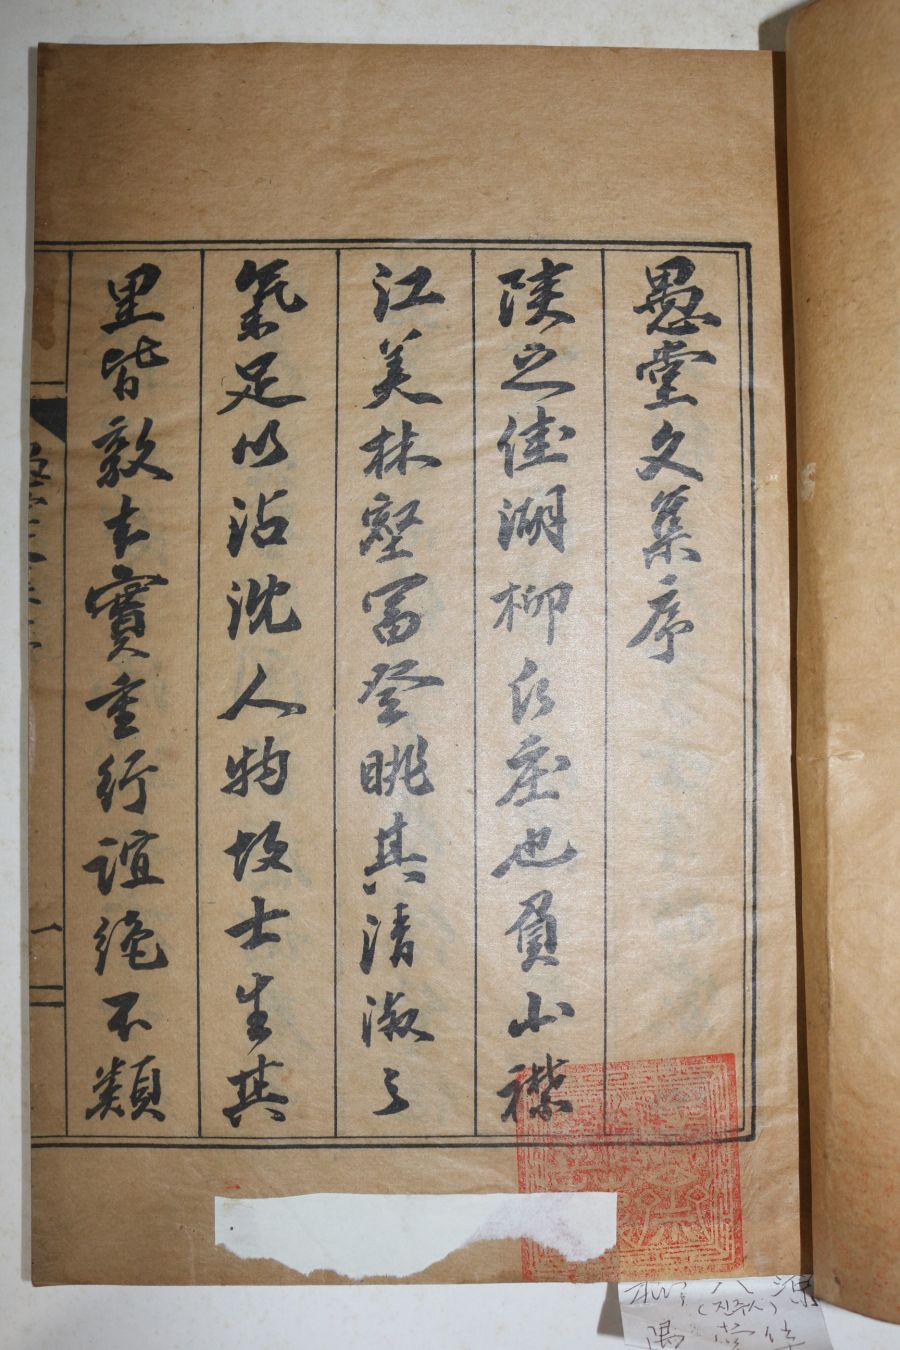 愚堂文集序
陜之佳湖柳氏庄也負山襟
江美林壑富登眺其清淑之
氣足以沾沈人物故士生其
里皆敦本實重行誼絶不類
一
(진주人)